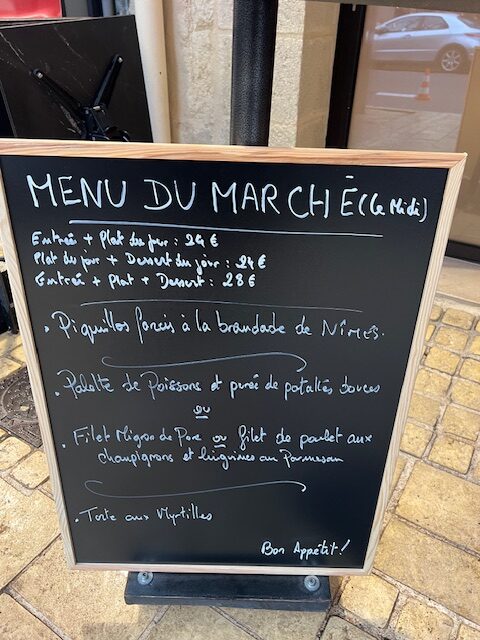 MENU DU MARCHÉ (Le Midi)
Entrée + Plat du jour : 24 €
Plat du jour + Dessert du jour : 24 €
Entrée + Plat + Dessert : 28 €
• Piquillos farcis à la brandade de NÎMES.
• Palette de Poissons et purée de patates douces
ou
• Filet Mignon de Porc ou filet de poulet aux
champignons et linguines au Parmesan
• Tarte aux Myrtilles
Bon Appétit !